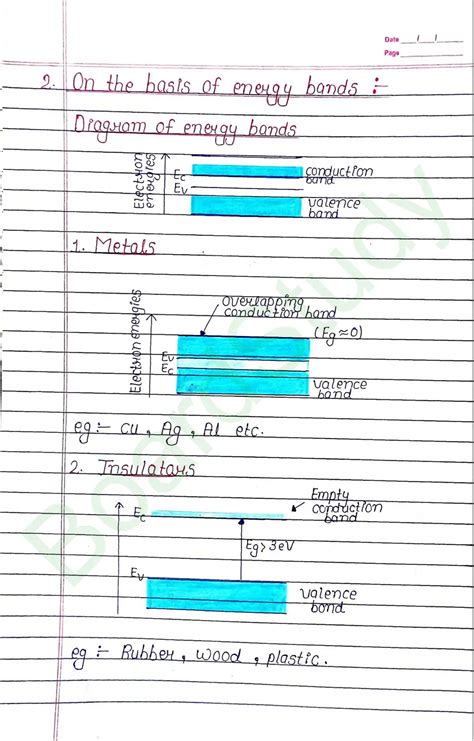 Date / /
Page
2. On the basis of energy bands :-
Diagram of energy bands
Electron energies
Ec
Ev
conduction band
valence band
1. Metals
Electron energies
overlapping conduction band
(Eg≈0)
Ev
Ec
valence band
eg:- Cu, Ag, Al etc.
2. Insulators
Empty conduction band
Ec
Eg>3eV
Ev
valence bond
eg:- Rubber, wood, plastic.
BoardStudy